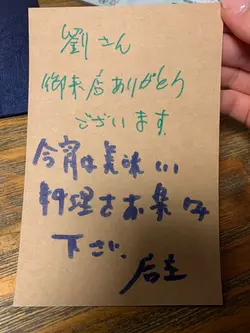 劉さん
御来店ありがとう
ございます
今宵は美味しい
料理をお楽しみ
下さい
店主